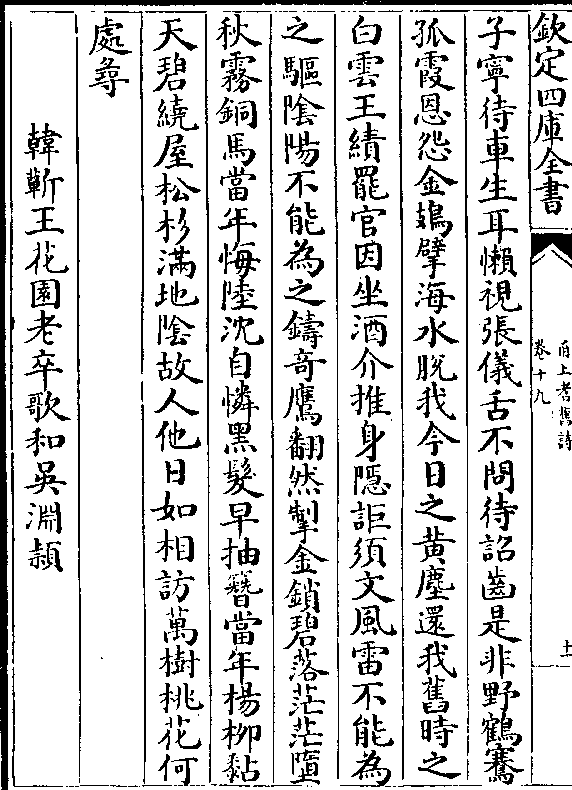 欽定四庫全書
甬上耆舊詩
卷十九
十
子寧待車生耳懶視張儀舌不問待詔齒是非野鶴騫
孤霞恩怨金鵶擘海水脫我今日之黃塵還我舊時之
白雲王績罷官因坐酒介推身隱詎須文風雷不能為
之驅陰陽不能為之鑄奇鷹翻然掣金鎖碧落茫茫墮
秋霧銅馬當年悔陸沈自憐黑髮早抽簪當年楊柳黏
天碧繞屋松杉滿地陰故人他日如相訪萬樹桃花何
處尋
韓蘄王花園老卒歌和吳淵穎